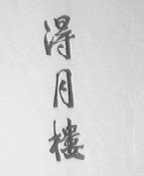 得月樓